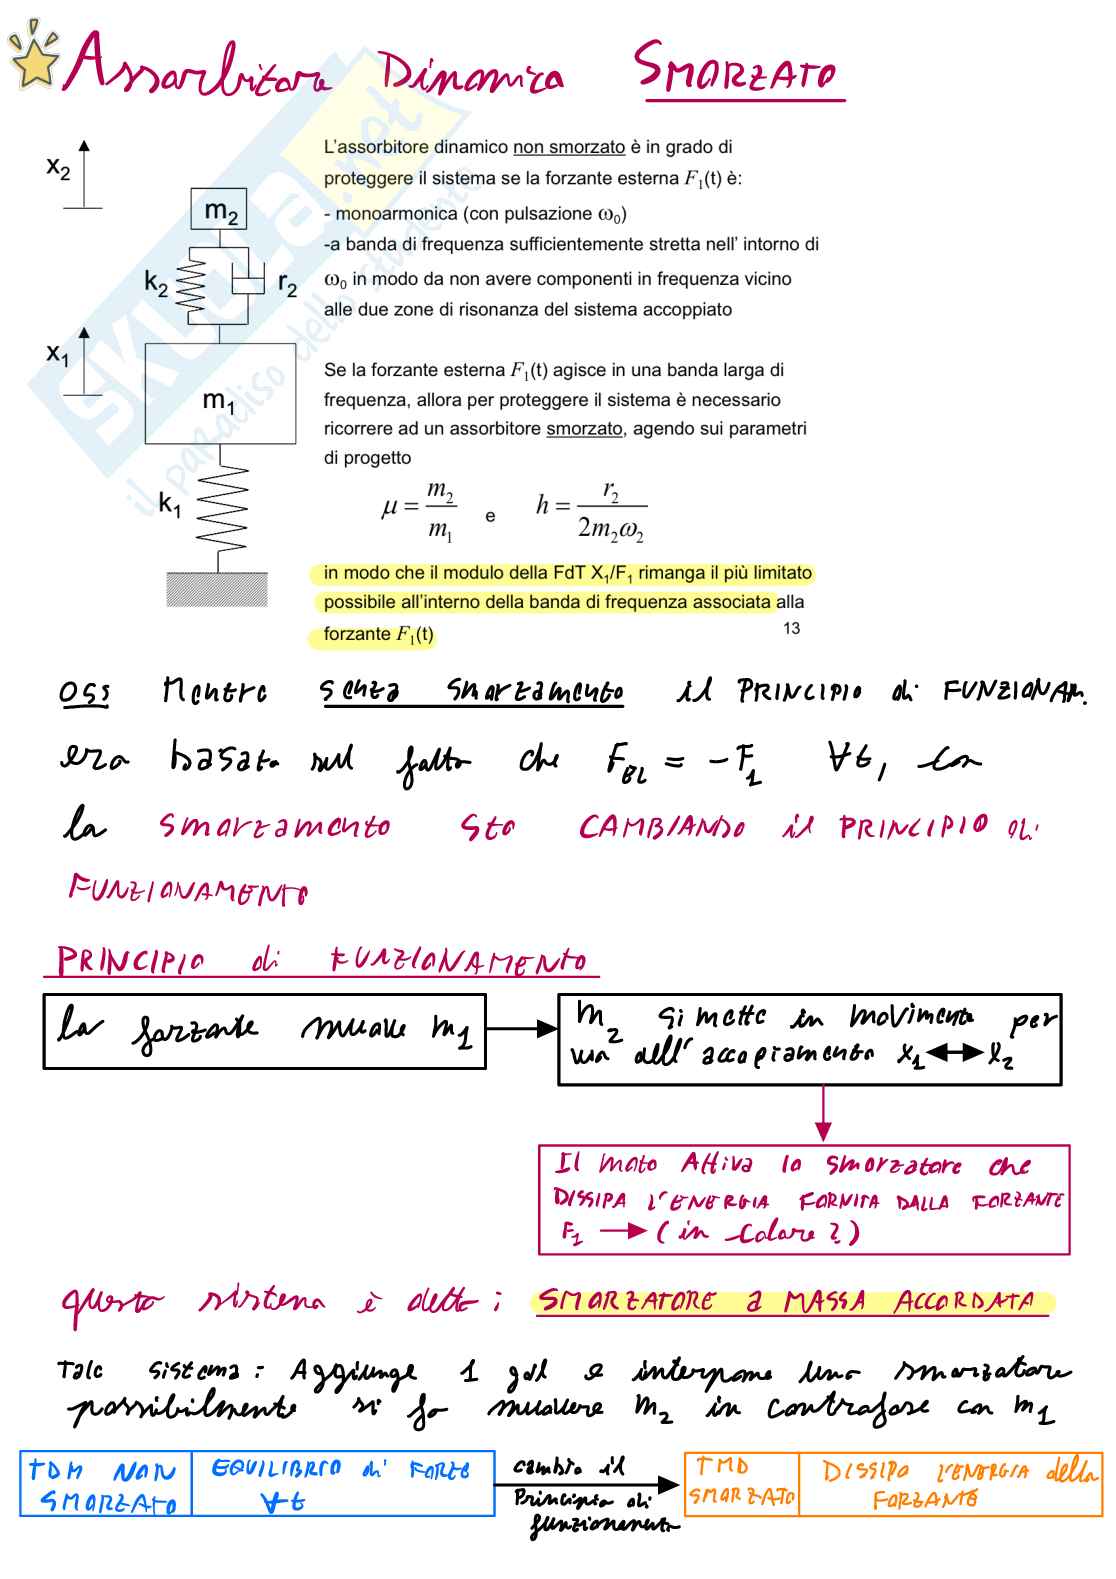 Assorbitore Dinamico SMORZATO
L'assorbitore dinamico non smorzato è in grado di
proteggere il sistema se la forzante esterna F₁(t) è:
- monoarmonica (con pulsazione ω₀)
-a banda di frequenza sufficientemente stretta nell' intorno di
ω₀ in modo da non avere componenti in frequenza vicino
alle due zone di risonanza del sistema accoppiato
x₂
m₂
k₂
r₂
x₁
m₁
k₁
Se la forzante esterna F₁(t) agisce in una banda larga di
frequenza, allora per proteggere il sistema è necessario
ricorrere ad un assorbitore smorzato, agendo sui parametri
di progetto
μ = m₂/m₁ e h = r₂/2m₂ω₂
in modo che il modulo della FdT X₁/F₁ rimanga il più limitato
possibile all'interno della banda di frequenza associata alla
forzante F₁(t)
13
SKUOLA.net
il paradiso dello studente
OSS Mentre senza smorzamento il PRINCIPIO di FUNZIONAM.
era basato sul fatto che F_BL = -F₁ ∀t, con
lo smorzamento sto CAMBIANDO il PRINCIPIO di
FUNZIONAMENTO
PRINCIPIO di FUNZIONAMENTO
la forzante muove m₁
m₂ si mette in movimento per
via dell'accoppiamento x₁ ↔ x₂
Il moto Attiva lo smorzatore che
DISSIPA l'ENERGIA FORNITA DALLA FORZANTE
F₁ → (in calore?)
questo sistema è detto: SMORZATORE a MASSA ACCORDATA
Tale sistema: Aggiunge 1 gdl e interpone uno smorzatore
possibilmente si fa muovere m₂ in controfase con m₁
TDM NON
SMORZATO
EQUILIBRIO di FORZE
∀t
cambio il
Principio di
funzionamento
TMD
SMORZATO
DISSIPO l'ENERGIA della
FORZANTE